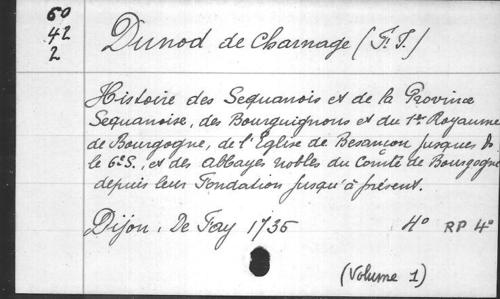 60
42
2
Dunod de Charnage (F. J.)
Histoire des Sequanois et de la Province
Sequanoise, des Bourguignons et du 1er Royaume
de Bourgogne, de l'Eglise de Besançon jusques ds
le 6e S., et des Abbayes nobles du Comté de Bourgogne
depuis leur Fondation jusqu'à présent.
Dijon, De Fay 1735 4° RP 4°
(Volume 1)